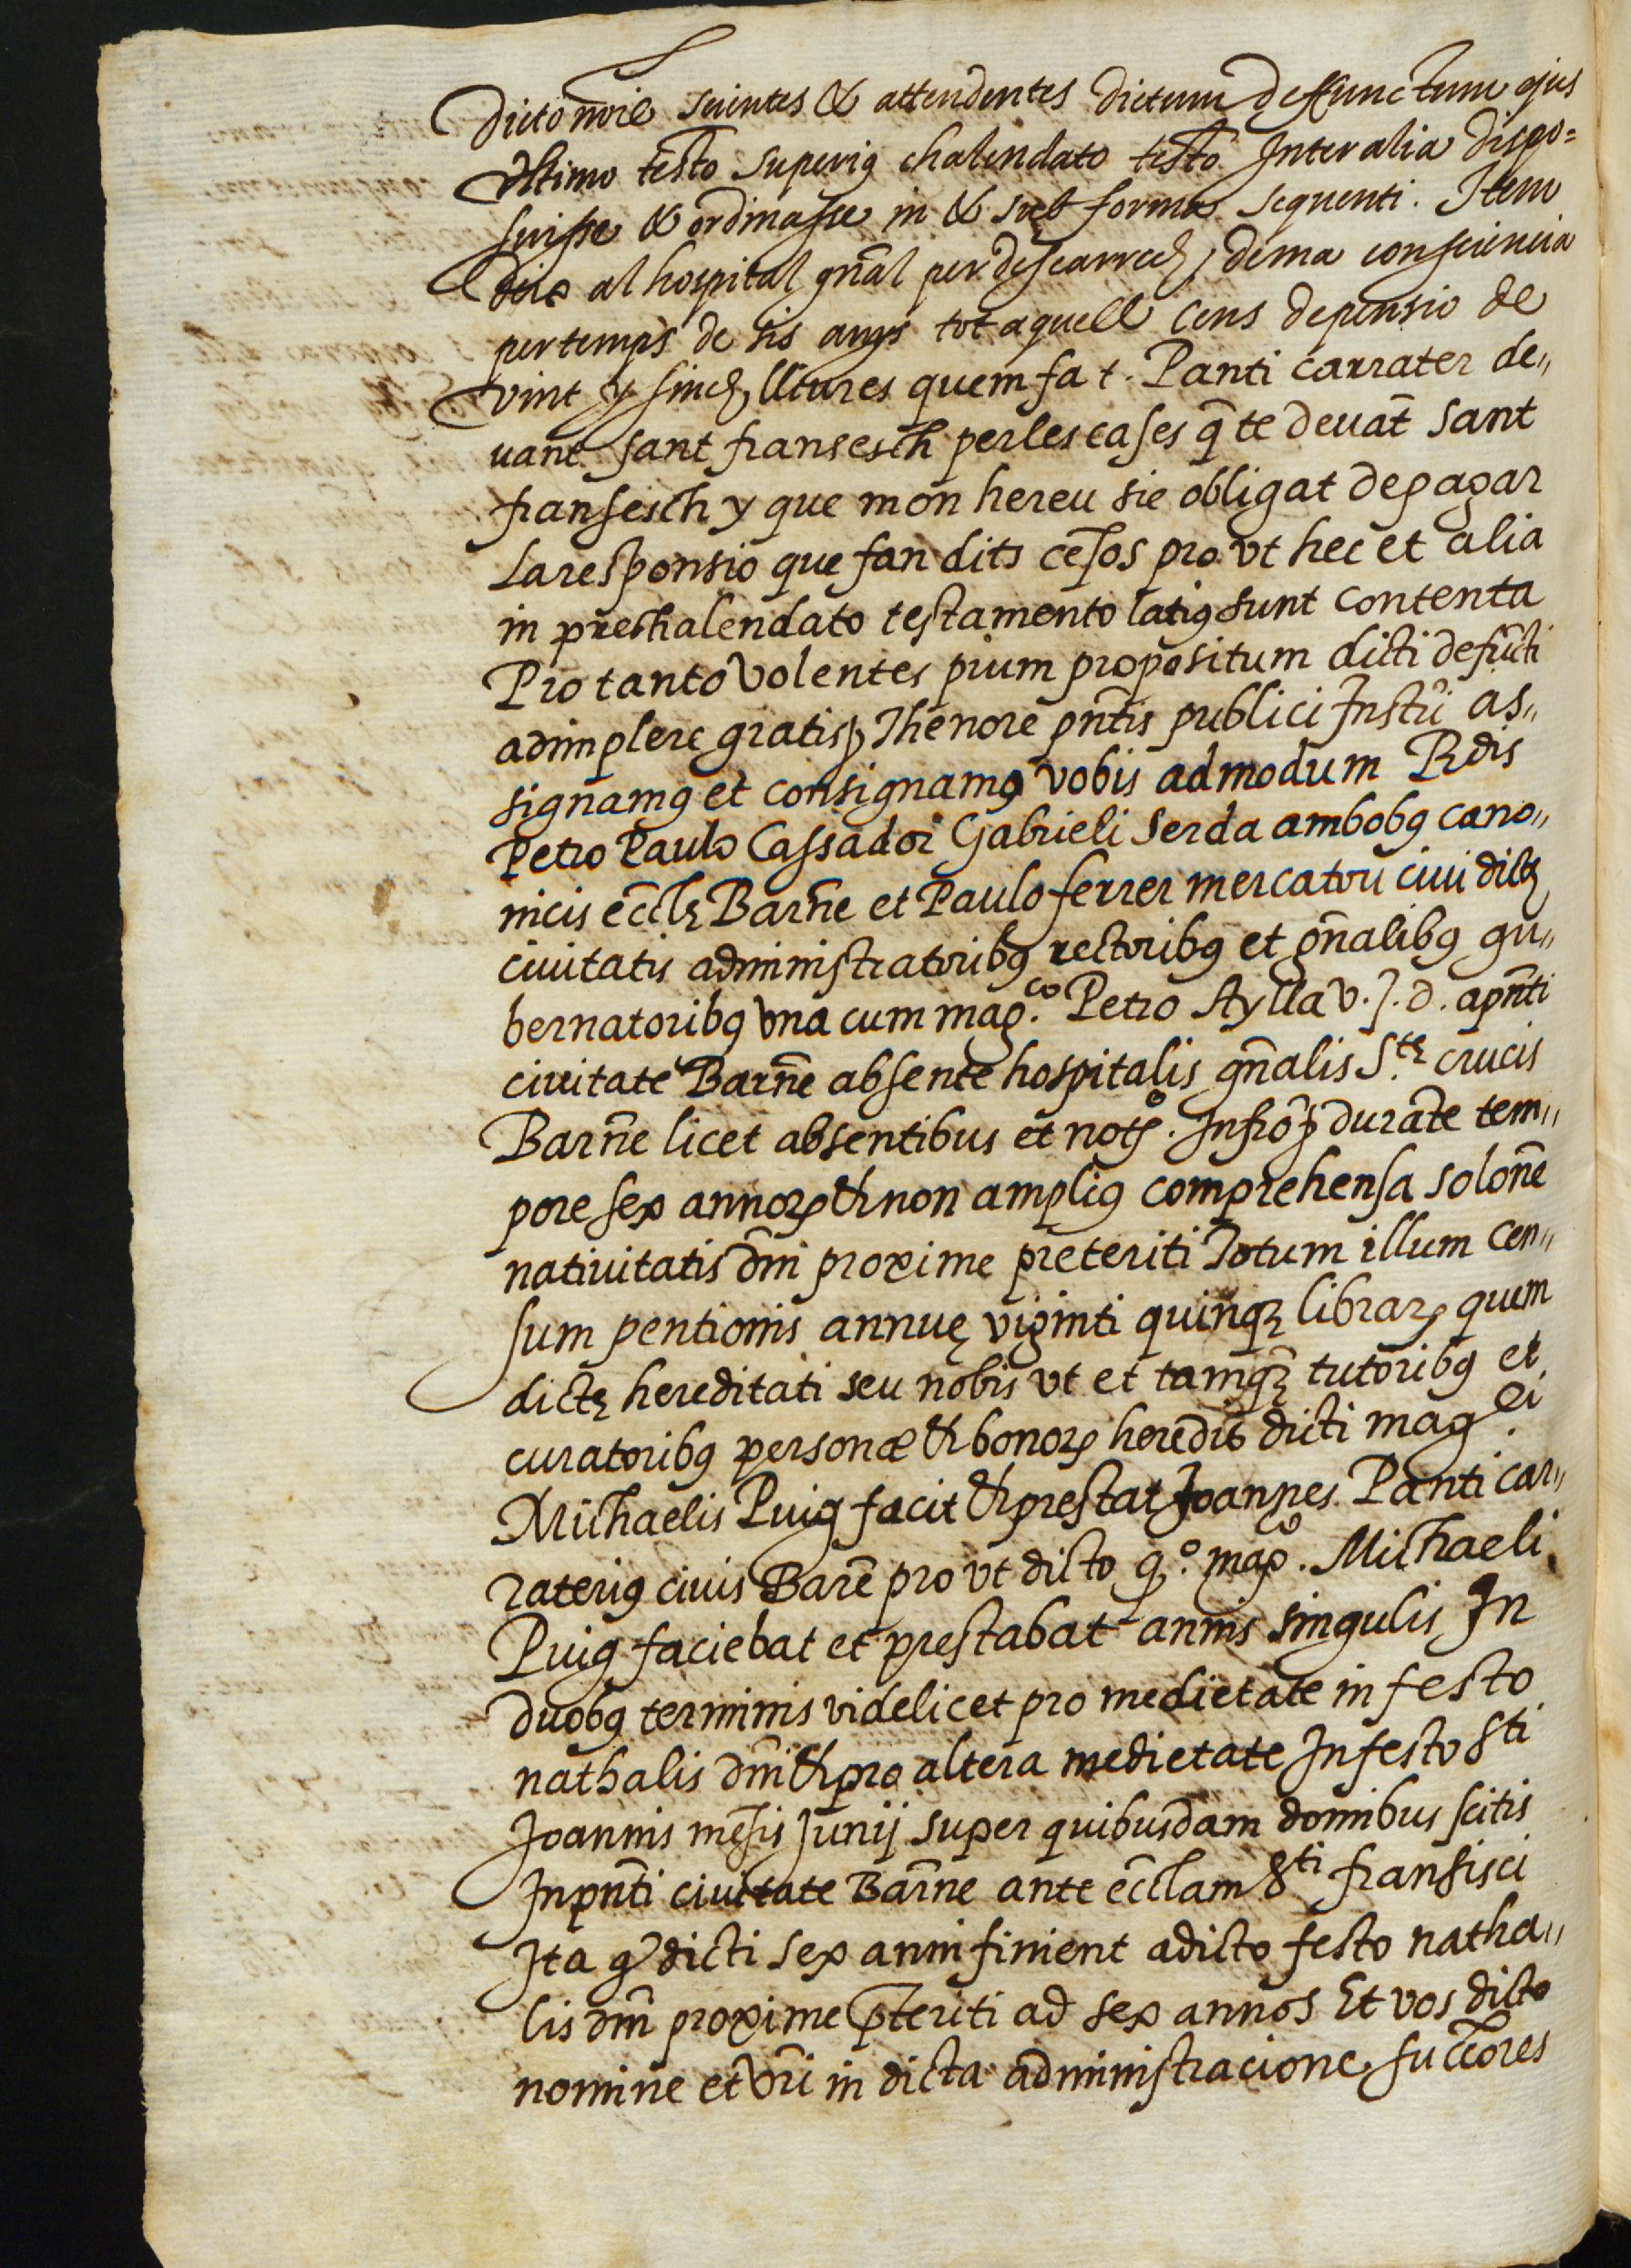 dicto nōie scientes & attendentes dictum deffunctum ejus
vltimo testo superiꝯ chalendato testo Inter alia dispo=
suisse & ordinasse in & sub forma sequenti. Item
dexo al hospital gn̄al per descarrech de ma consciencia
per temps de sis anys tot aquell cens de pensio de
vint y sinch lliures quem fa t. Panti carrater de„
uant sant fransesch per les cases q̄ te deuāt sant
fransesch y que mon hereu sie obligat de pagar
La responsio que fan dits cēsos pro vt hec et alia
in prechalendato testamento latiꝯ sunt contenta
Pro tanto volentes pium propositum dicti defūcti
adimplere gratis Thenore pn̄tis publici Instrī as„
signamꝯ et consignamꝯ vobis admodum Rdis
Petro Paulo Cassador Gabrieli Serda ambobꝯ cano„
nicis ecclę Barn̄e et Paulo ferrer mercatori ciui dictę
ciuitatis administratoribꝯ rectoribꝯ et gn̄alibꝯ gu„
bernatoribꝯ vna cum mag.co Petro Aylla v. J. d. a pn̄ti
ciuitate Barn̄e absente hospitalis gn̄alis S.tę crucis
Barn̄e licet absentibus et noto. Infro ꝑ durāte tem„
pore sex annoꝝ & non ampliꝯ comprehensa solon̄e
natiuitatis dn̄i proxime preteriti Totum illum cen„
sum pentionis annuę viginti quinqꝫ libraꝝ quem
dictę hereditati seu nobis vt et tamqꝫ tutoribꝯ et
curatoribꝯ personæ & bonoꝝ heredis dicti mag.ci
Michaelis Puig facit & prestat Joannes Panti car„
rateriꝯ ciuis Barē pro vt dicto qº. mag.co Michaeli
Puig faciebat et prestabat annis singulis In
duobꝯ terminis videlicet pro medietate in festo
nathalis dn̄i & pro altera medietate In festo Sti
Joannis mēsis Junij super quibusdam domibus scitis
In pn̄ti ciuitate Barn̄e ante eccl̄am Sti fransisci
Ita qꝫ dicti sex anni finient a dicto festo natha„
lis dn̄i proxime p̄teriti ad sex annos Et vos dicto
nomine et vr̄i in dicta administracione succ̄ores